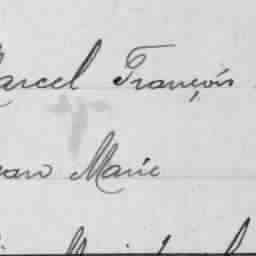 arcel François
ean Marie